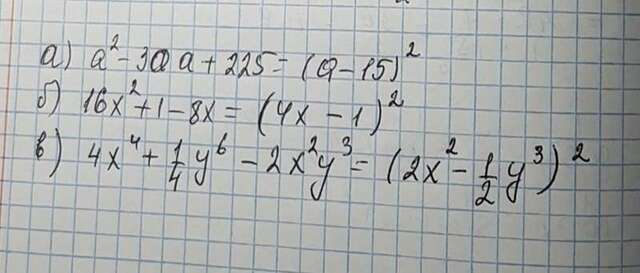 а) a² - 30a + 225 = (a - 15)²
б) 16x² + 1 - 8x = (4x - 1)²
в) 4x⁴ + 1/4 y⁶ - 2x²y³ = (2x² - 1/2 y³)²